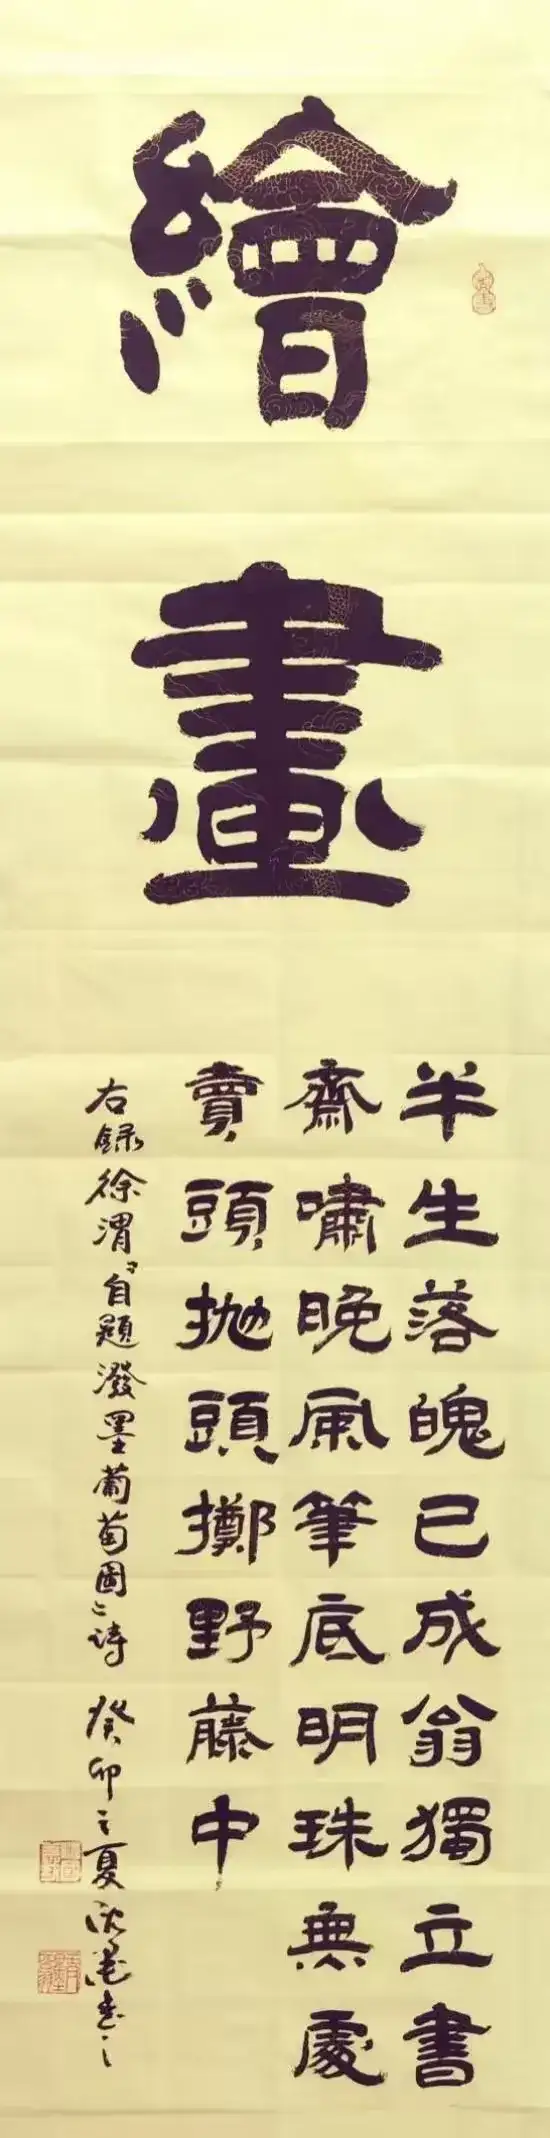 繪畫
半生落魄已成翁獨立書
齋嘯晚風筆底明珠無處
賣頭拋頭擲野藤中
右録徐渭"自題潑墨葡萄圖"詩 癸卯之夏